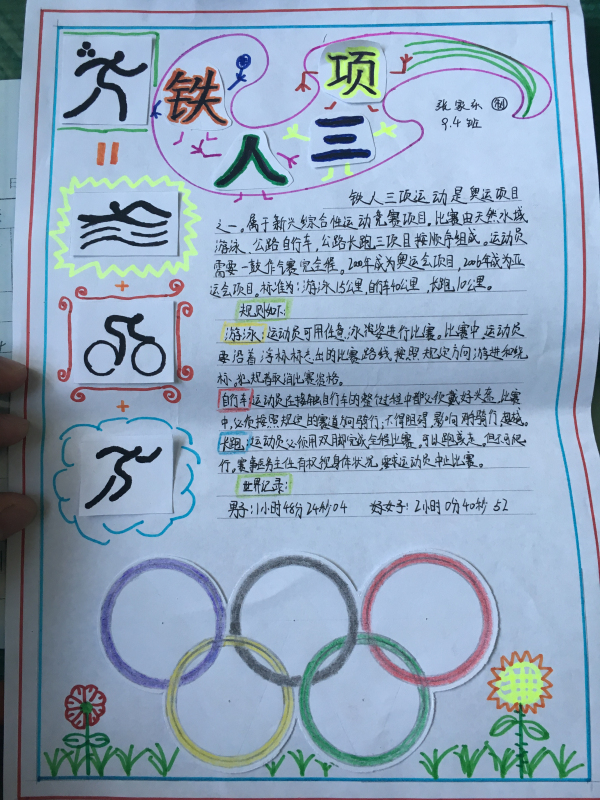 铁人三项
张家乐 制
9.4班
铁人三项运动是奥运项目
之一。属于新兴综合性运动竞赛项目。比赛由天然水域
游泳、公路自行车、公路长跑三项目按顺序组成。运动员
需要一鼓作气赛完全程。2000年成为奥运会项目,2006年成为亚
运会项目。标准为:游泳1.5公里,自行车40公里,长跑10公里。
规则如下:
游泳:运动员可用任意泳姿进行比赛。比赛中,运动员
要沿着浮标标志出的比赛路线,按照规定方向游进和绕
标,犯规者取消比赛资格。
自行车:运动员在接触自行车的整个过程中都必须戴好头盔,比赛
中,必须按照规定的赛道和方向骑行;不得阻碍,影响骑行
长跑:运动员必须用双脚完成全程比赛,可以跑或走,但不可爬
行。赛事医务主任有权视身体状况,要求运动员中止比赛。
世界记录:
男子:1小时48分24秒04 女子:2小时0分40秒52